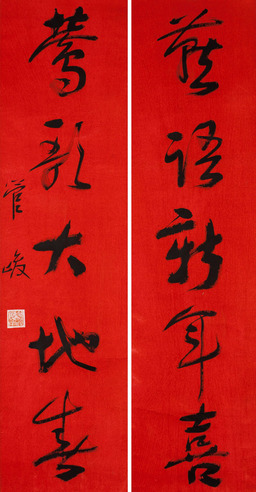 燕语新年喜
莺歌大地春
管峻